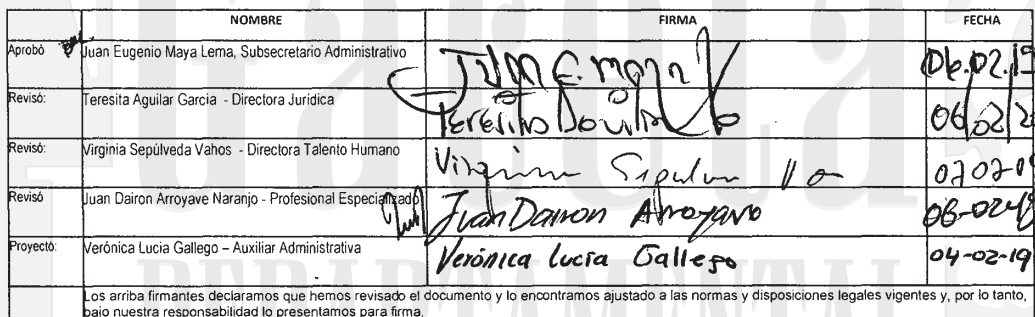 NOMBRE FIRMA FECHA
Aprobó Juan Eugenio Maya Lema, Subsecretario Administrativo Juan E. Maya 06.02.19
Revisó: Teresita Aguilar García - Directora Jurídica Teresita Aguilar 06/02/2
Revisó: Virginia Sepúlveda Vahos - Directora Talento Humano Virginia Sepulve 07 02-19
Revisó Juan Dairon Arroyave Naranjo - Profesional Especializado Juan Dairon Arroyave 06-02-19
Proyectó: Verónica Lucia Gallego – Auxiliar Administrativa Verónica Lucía Gallego 04-02-19
Los arriba firmantes declaramos que hemos revisado el documento y lo encontramos ajustado a las normas y disposiciones legales vigentes y, por lo tanto,
bajo nuestra responsabilidad lo presentamos para firma.